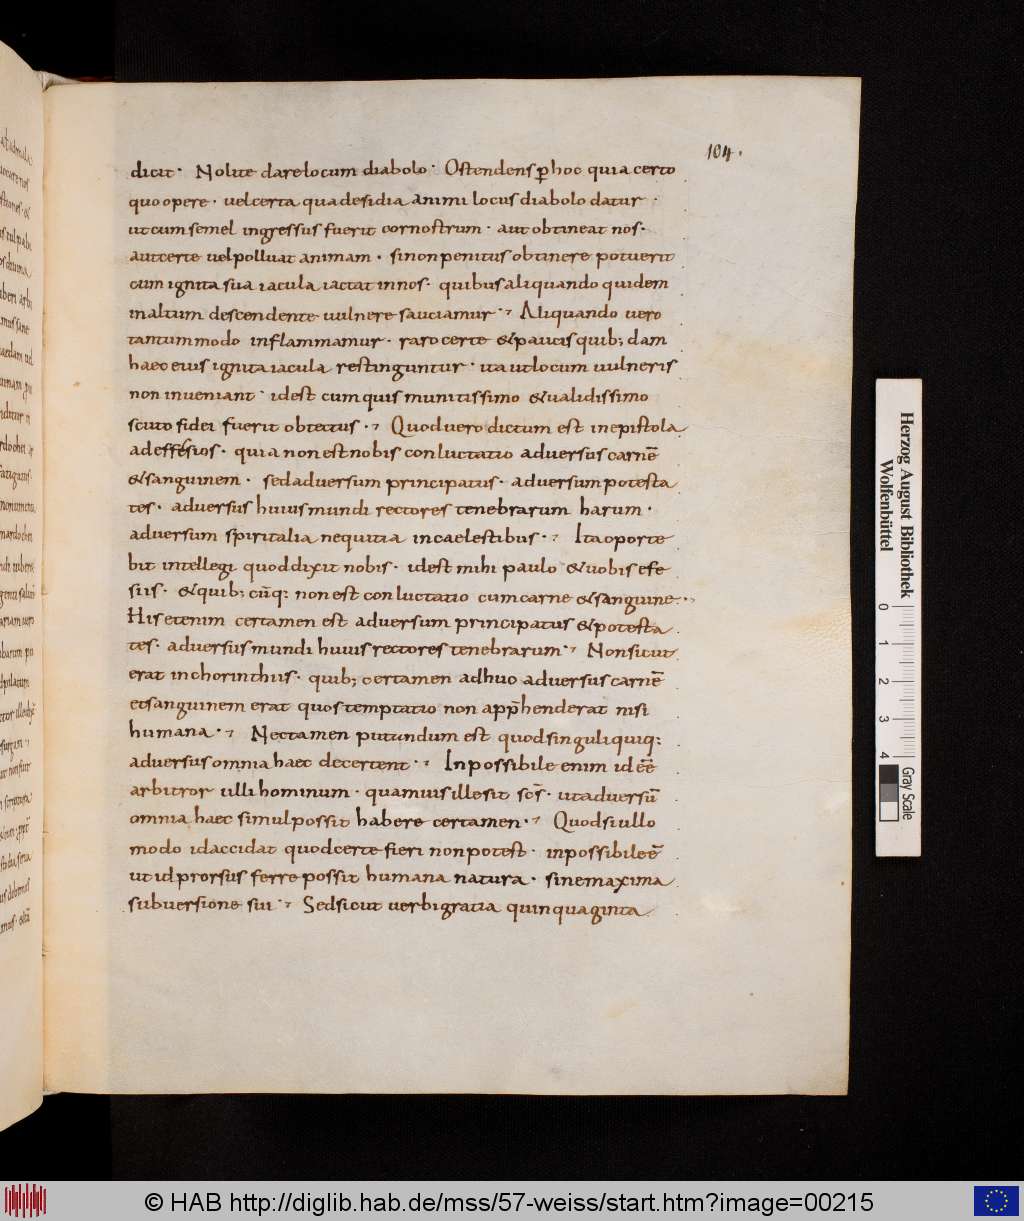 104.
dicit · Nolite dare locum diabolo · Ostendens ꝑ hoc quia certo
quo opere · vel certa quadesidia animi locus diabolo datur ·
ut cum semel ingressus fuerit cor nostrum · aut obtineat nos ·
aut certe vel polluat animam · si non penitus obtinere potuerit
cum ignita sua iacula iactat in nos · quibus aliquando quidem
in altum descendente vulnere sauciamur · Aliquando vero
tantummodo inflammamur · raro certe & paucis quib; dam
haec eius ignita iacula restinguntur · ita ut locum vulneris
non inveniant · id est cum quis munitissimo & validissimo
scuto fidei fuerit obtectus · Quod vero dictum est in epistola
ad effesios · quia non est nobis conluctatio adversus carnē
& sanguinem · sed adversum principatus · adversum potesta
tes · adversus huius mundi rectores tenebrarum harum ·
adversum spiritalia nequitia in caelestibus · Ita oporte
bit intellegi quod dixit nobis · id est mihi paulo & vobis efe
siis · & quib; cūq; non est conluctatio cum carne & sanguine ·
His etenim certamen est adversum principatus & potesta
tes · adversus mundi huius rectores tenebrarum · Non sicut
erat in chorinthiis · quib; certamen adhuo adversus carnē
et sanguinem erat quos temptatio non apꝑhenderat nisi
humana · Nec tamen putandum est quod singuli quiq;
adversus omnia haec decertent · Inpossibile enim id ēē
arbitror ulli hominum · quamvis ille sit sc̄s · ut adversū
omnia haec simul possit habere certamen · Quod si ullo
modo id accidat quod certe fieri non potest · inpossibile ē
ut id prorsus ferre possit humana natura · sine maxima
subversione sui · Sed sicut verbi gratia quinquaginta
Herzog August Bibliothek
Wolfenbüttel
0 1 2 3 4
Gray Scale
© HAB http://diglib.hab.de/mss/57-weiss/start.htm?image=00215